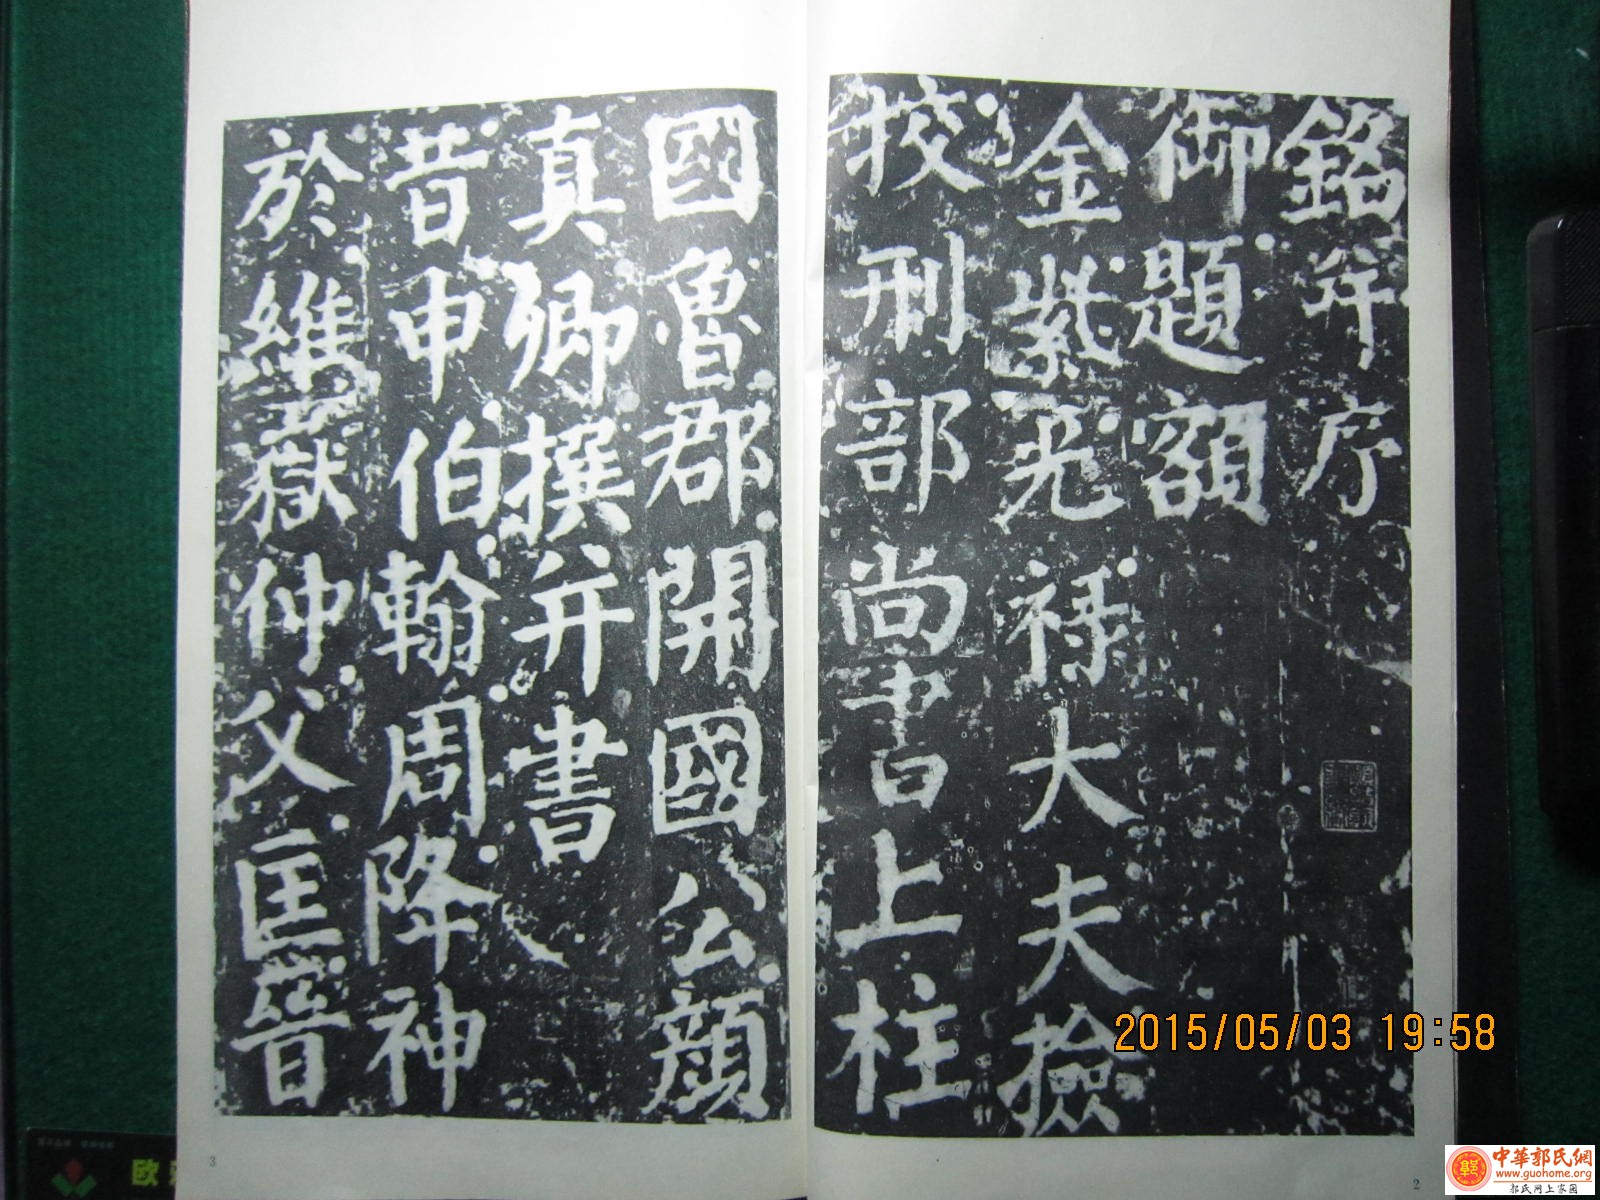 銘并序
御題額
金紫光祿大夫撿
挍刑部尚書上柱
國魯郡開國公顏
真卿撰并書
昔申伯翰周降神
於維嶽仲父匡晉
2015/05/03 19:58
3
2
欧
中華郭氏網
www.guohome.org
郭氏网上家园